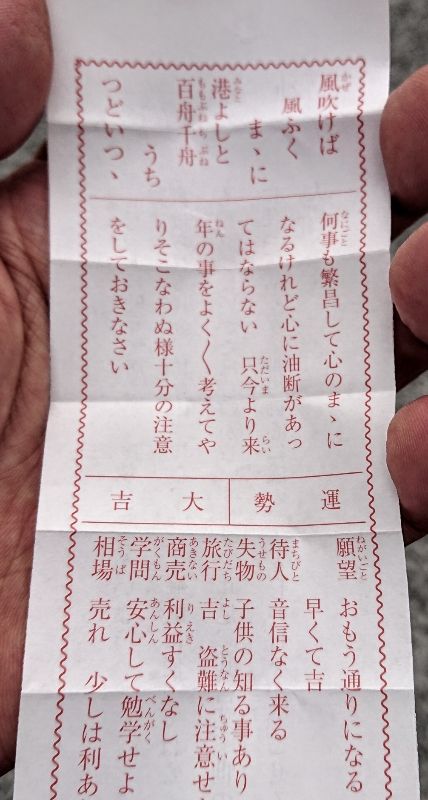 風吹けば
風ふく
まゝに
港よしと
百舟千舟
うち
つどいつゝ
何事も繁昌して心のまゝに
なるけれど心に油断があっ
てはならない 只今より来
年の事をよく〱考えてや
りそこなわぬ様十分の注意
をしておきなさい
運勢 大吉
願望 おもう通りになる
早くて吉
待人 音信なく来る
失物 子供の知る事あり
旅行 吉 盗難に注意せ
商売 利益すくなし
学問 安心して勉学せよ
相場 売れ 少しは利あ